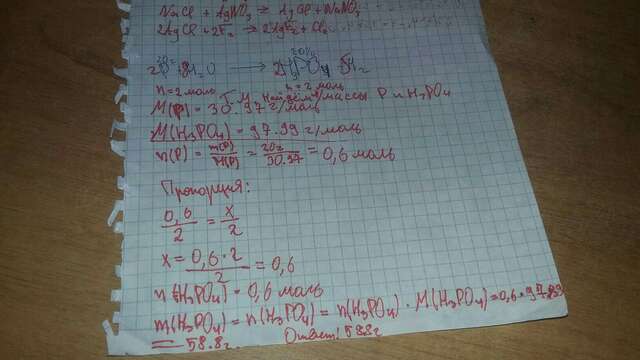 NaCl + AgNO₃ → AgCl + NaNO₃
2AgCl + 2F₂ → 2AgF₂ + Cl₂
2P + 8H₂O → 2H₃PO₄ + 5H₂
n = 2 моль n = 2 моль
массы P и H₃PO₄
M(P) = 30.97 г/моль
M(H₃PO₄) = 97.99 г/моль
n(P) = m(P)/M(P) = 20г/30.97 = 0,6 моль
Пропорция:
0,6/2 = x/2
x = 0,6 · 2/2 = 0,6
n(H₃PO₄) = 0,6 моль
m(H₃PO₄) = n(H₃PO₄) = n(H₃PO₄) · M(H₃PO₄) = 0,6 · 97.99
= 58.8г. Ответ: 58.8г